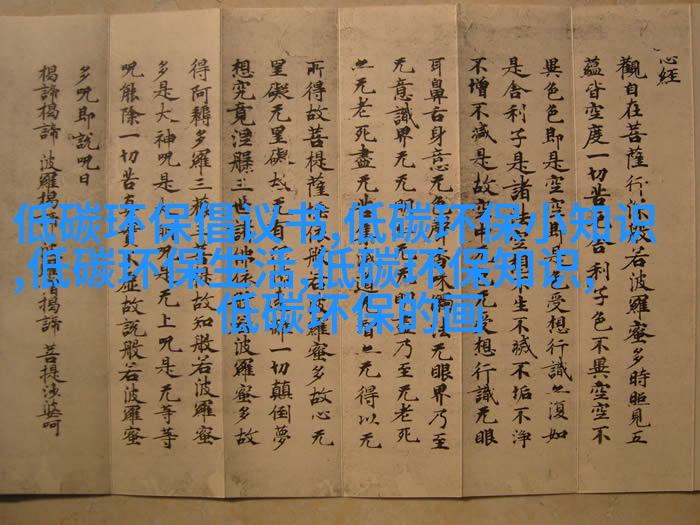 心经
觀自在菩薩行般若波羅蜜多時照見五
蘊皆空度一切苦舍利子色不異空空不
異色色即是空空即是色受想行識亦復如
是舍利子是諸法空相不生不滅不垢不淨
不增不減是故空中无受想行識无眼
耳鼻舌身意无色聲香味觸法无眼界乃至
无意識界无无明乃至无老死
亦无老死盡无苦集滅道亦无得以无
所得故菩提薩埵依般若波羅蜜多故心无
罣礙无罣礙故无有一切顛倒夢
想究竟涅槃三世諸佛依般若波羅蜜多故
得阿耨多羅三藐菩提故知般若波羅蜜
多是大神呪是大明呪是无上呪是无等等
呪能除一切苦真實不虛故說般若波羅蜜
多呪即說呪曰
揭諦揭諦 波羅揭諦 波羅僧揭諦 菩提莎婆呵
低碳环保倡议书,低碳环保小知识
,低碳环保生活,低碳环保知识,
低碳环保的画